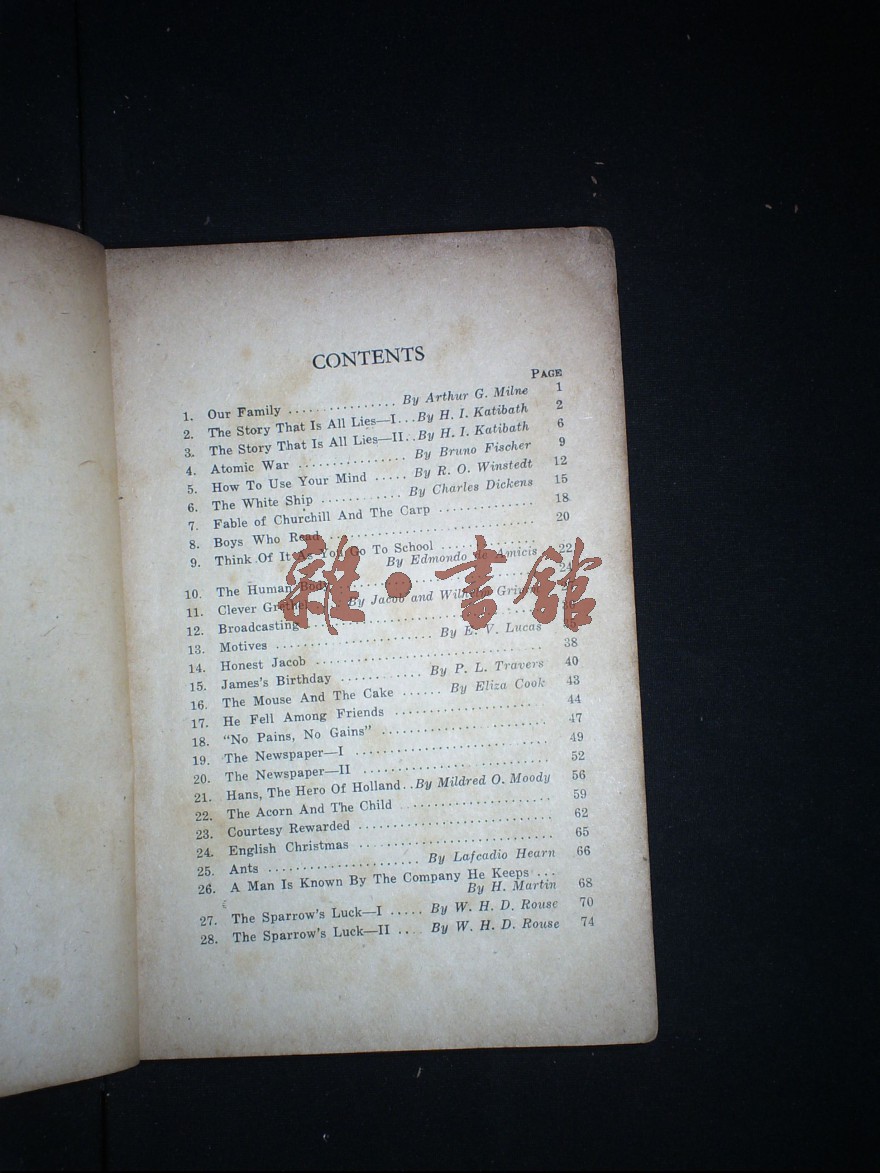 CONTENTS
PAGE
1. Our Family ................ By Arthur G. Milne 1
2. The Story That Is All Lies—I...By H. I. Katibath 2
3. The Story That Is All Lies—II..By H. I. Katibath 6
4. Atomic War ............... By Bruno Fischer 9
5. How To Use Your Mind ..... By R. O. Winstedt 12
6. The White Ship ........... By Charles Dickens 15
7. Fable of Churchill And The Carp ............. 18
8. Boys Who Read ............................. 20
9. Think Of It As You Go To School .............
By Edmondo de Amicis 22
10. The Human Body .......................... 24
11. Clever Grethel ... By Jacob and Wilhelm Grimm
12. Broadcasting ................................
13. Motives ...................... By E. V. Lucas
14. Honest Jacob ............................... 38
15. James's Birthday ............ By P. L. Travers 40
16. The Mouse And The Cake ...... By Eliza Cook 43
17. He Fell Among Friends ...................... 44
18. "No Pains, No Gains" ........................ 47
19. The Newspaper—I ............................ 49
20. The Newspaper—II ........................... 52
21. Hans, The Hero Of Holland..By Mildred O. Moody 56
22. The Acorn And The Child ..................... 59
23. Courtesy Rewarded ........................... 62
24. English Christmas ............................ 65
25. Ants ...................... By Lafcadio Hearn 66
26. A Man Is Known By The Company He Keeps ...
By H. Martin 68
27. The Sparrow's Luck—I ..... By W. H. D. Rouse 70
28. The Sparrow's Luck—II .... By W. H. D. Rouse 74
雜·書館